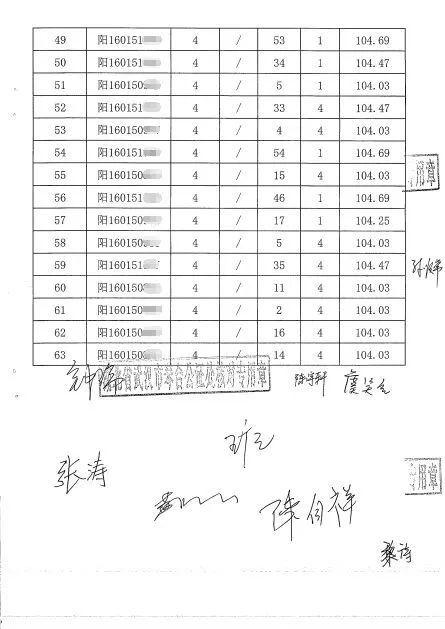 49 阳160151 4 / 53 1 104.69
50 阳160151 4 / 34 1 104.47
51 阳160150 4 / 5 1 104.03
52 阳160151 4 / 33 4 104.47
53 阳160150 4 / 4 4 104.03
54 阳160151 4 / 54 1 104.69
55 阳160150 4 / 15 4 104.03
56 阳160151 4 / 46 1 104.69
57 阳160150 4 / 17 1 104.25
58 阳160150 4 / 5 4 104.03
59 阳160151 4 / 35 4 104.47
60 阳160150 4 / 11 4 104.03
61 阳160150 4 / 2 4 104.03
62 阳160150 4 / 16 4 104.03
63 阳160150 4 / 14 4 104.03
专用章
省武汉市琴台公证处核对专用章
张涛
陈向祥
专用章
黎诗